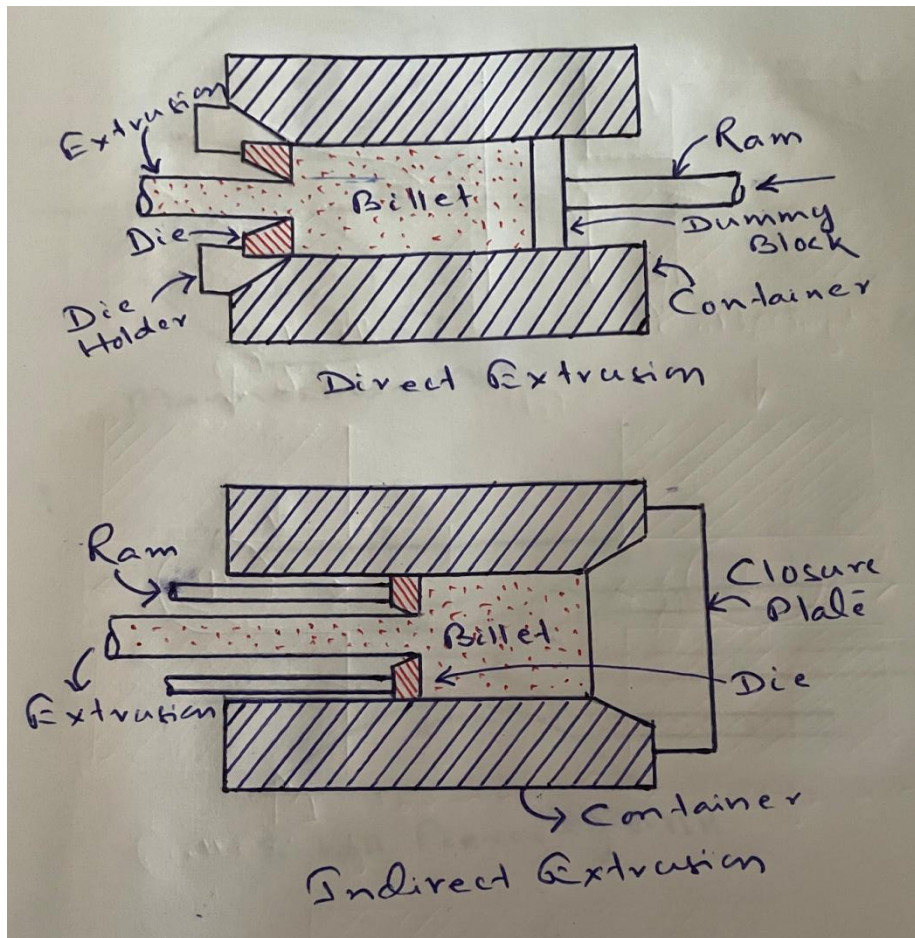 Extrusion
Ram
Billet
Dummy
Block
Die
Container
Die
Holder
Direct Extrusion
Ram
Closure
Plate
Billet
Die
Extrusion
Container
Indirect Extrusion